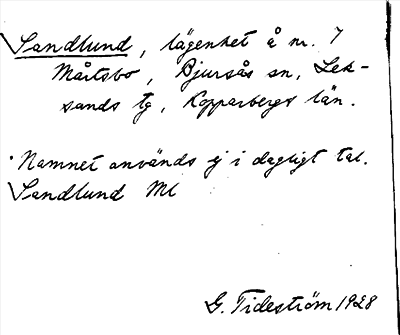 Sandlund, lägenhet å nr. 7
Mårtsbo, Bjursås sn, Lek-
sands tg, Kopparbergs län.
Namnet används ej i dagligt tal.
Sandlund Ml
G. Tideström 1928